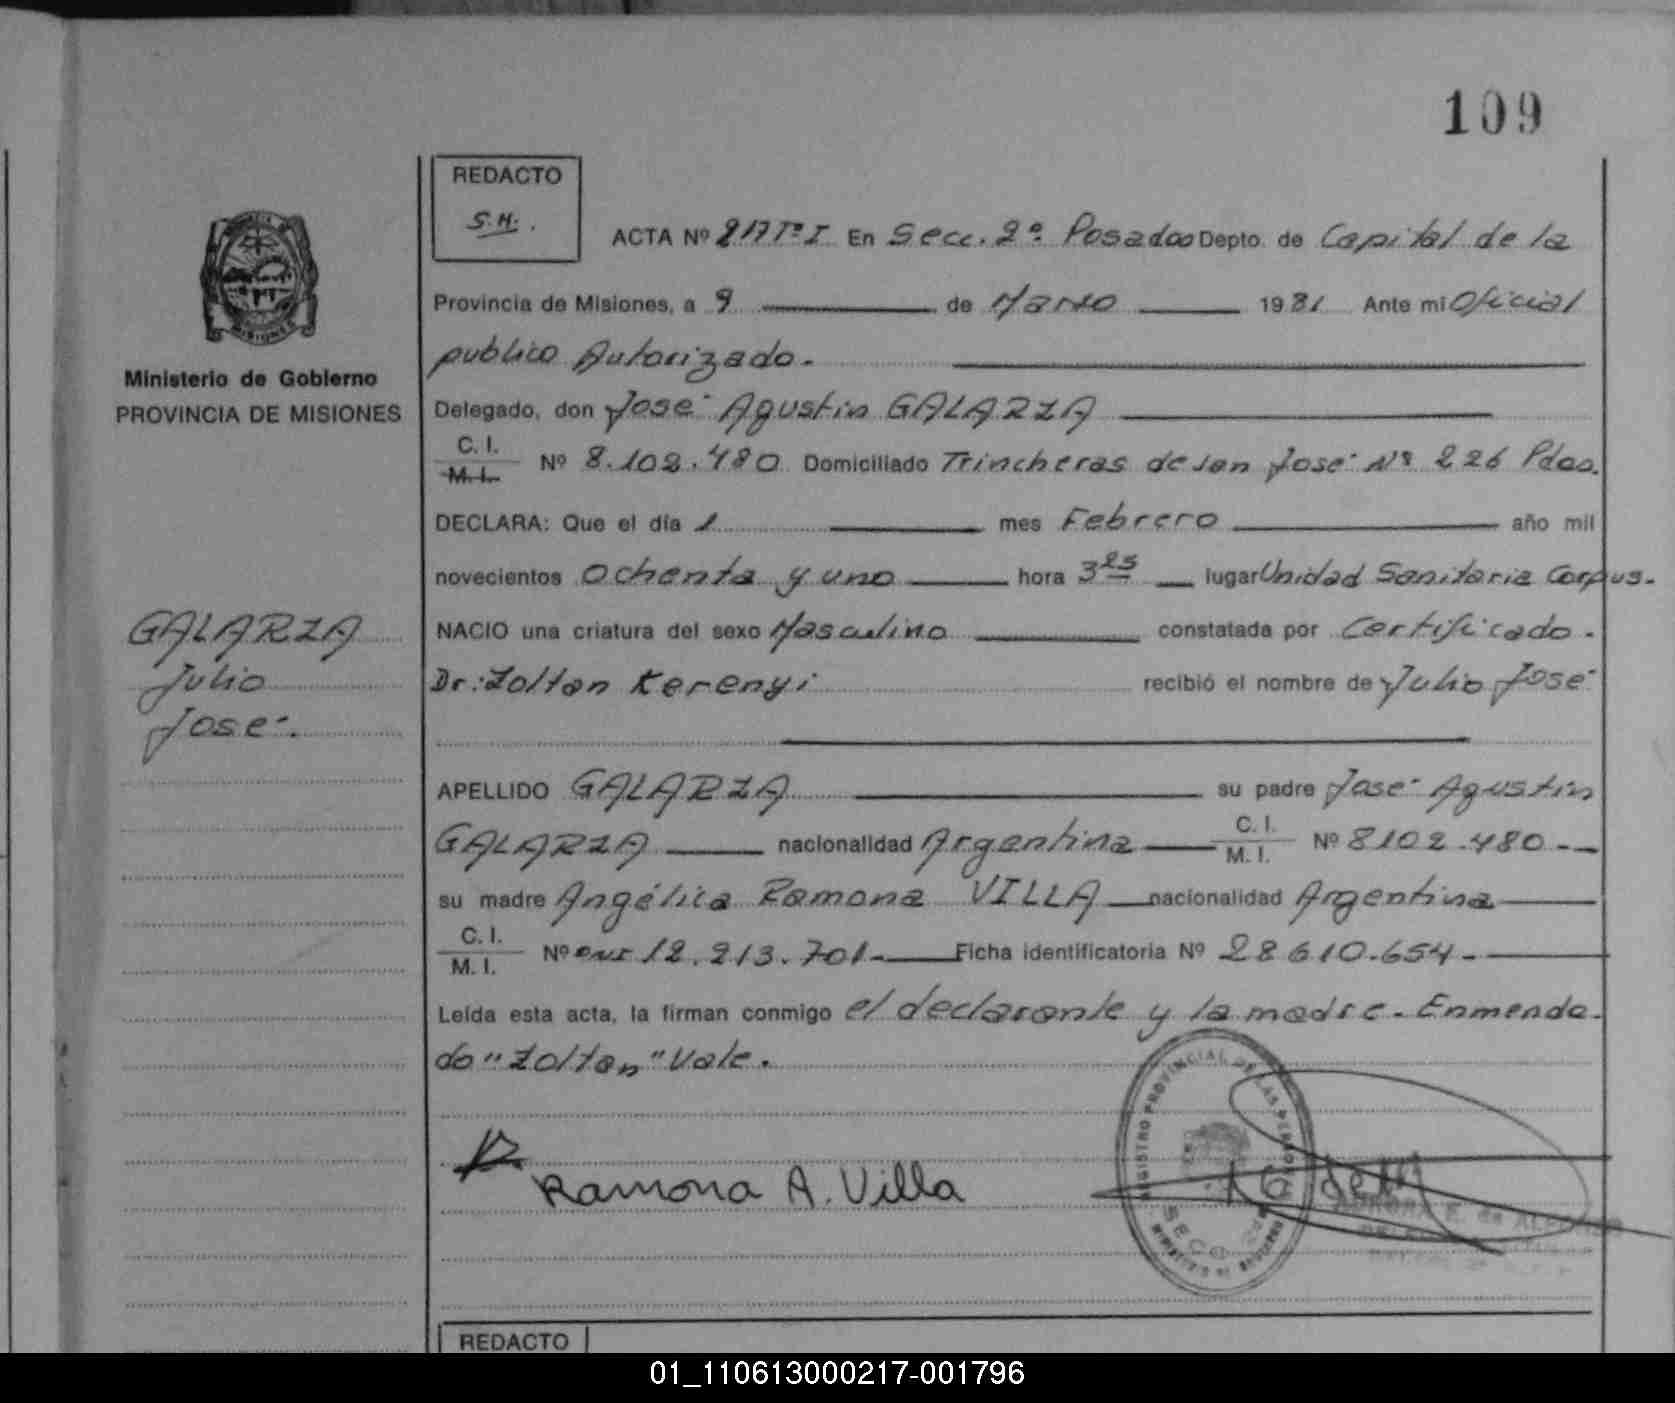 109
REDACTO
S.H.
ACTA Nº 217 Tº I En Secc. 2º Posadas Depto. de Capital de la
Provincia de Misiones, a 9 de Marzo 1981 Ante mi Oficial
publico Autorizado.
Ministerio de Gobierno
PROVINCIA DE MISIONES
Delegado, don José Agustin GALARZA
C. I.
M. I. Nº 8.102.480 Domiciliado Trincheras de san José Nº 226 Pdas.
DECLARA: Que el día 1 mes Febrero año mil
novecientos ochenta y uno hora 3 25 lugar Unidad Sanitaria Corpus.
GALARZA
Julio
José.
NACIO una criatura del sexo Masculino constatada por Certificado.
Dr: Zoltan Kerenyi recibió el nombre de Julio José
APELLIDO GALARZA su padre José Agustin
GALARZA nacionalidad Argentina C. I.
M. I. Nº 8102.480-
su madre Angélica Ramona VILLA nacionalidad Argentina
C. I.
M. I. Nº DNI 12.213.701- Ficha identificatoria Nº 28610.654-
Leída esta acta, la firman conmigo el declarante y la madre. Enmenda-
do "Zoltan" Vale.
Ramona A. Villa
REGISTRO PROVINCIAL DE LAS PERSONAS
MISIONES
REDACTO
01_110613000217-001796